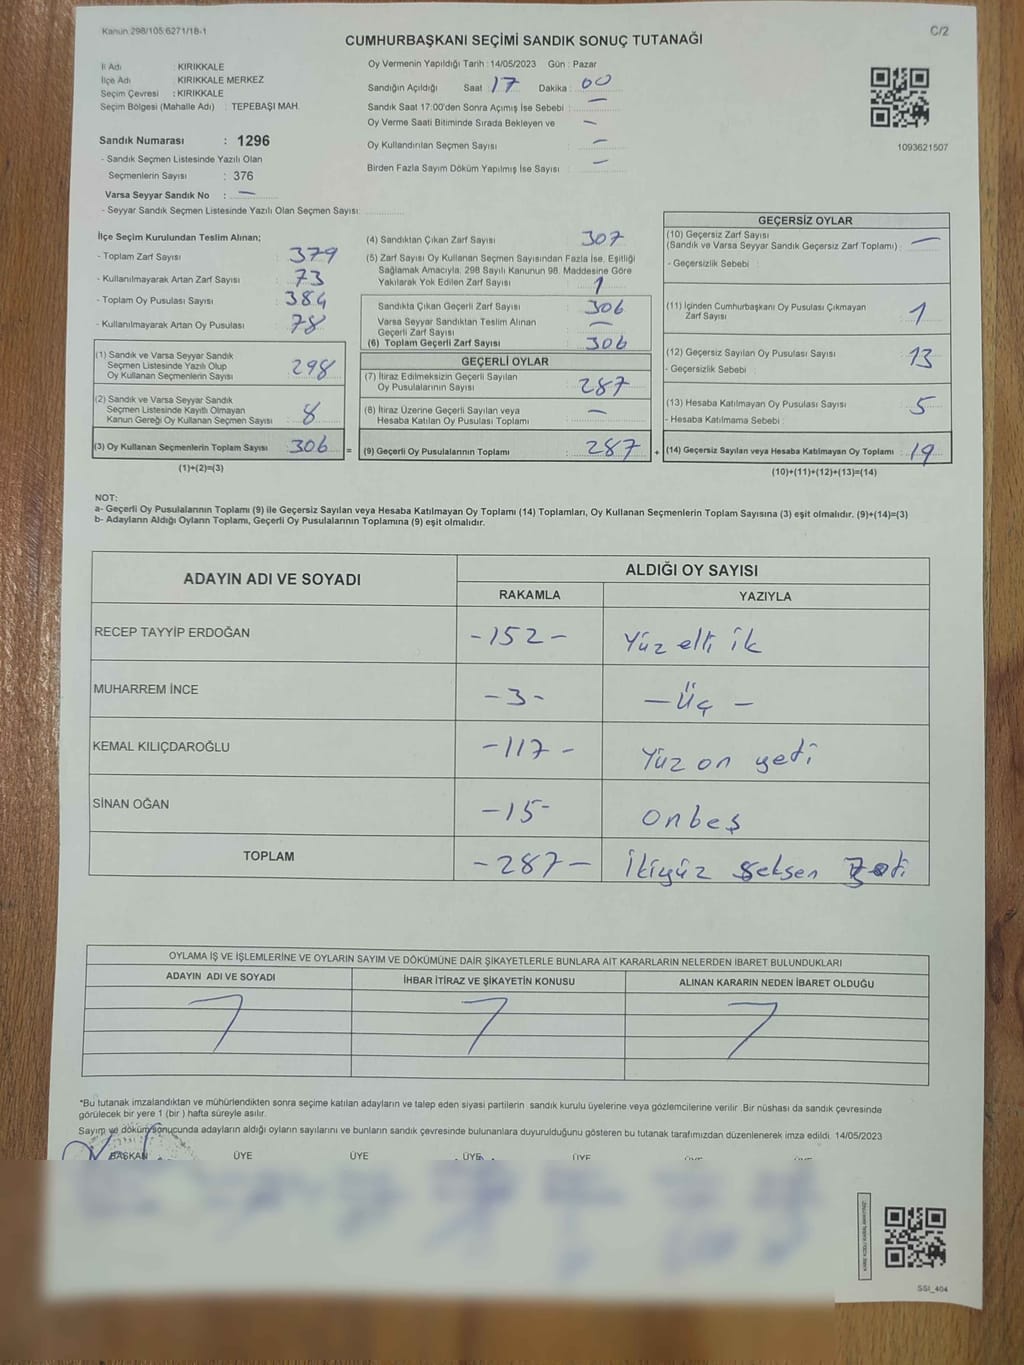 Kanun 298/105:6271/18-1
C/2
CUMHURBAŞKANI SEÇİMİ SANDIK SONUÇ TUTANAĞI
İl Adı : KIRIKKALE
İlçe Adı : KIRIKKALE MERKEZ
Seçim Çevresi : KIRIKKALE
Seçim Bölgesi (Mahalle Adı) : TEPEBAŞI MAH.
Sandık Numarası : 1296
- Sandık Seçmen Listesinde Yazılı Olan
Seçmenlerin Sayısı : 376
Varsa Seyyar Sandık No : —
- Seyyar Sandık Seçmen Listesinde Yazılı Olan Seçmen Sayısı:
Oy Vermenin Yapıldığı Tarih : 14/05/2023 Gün : Pazar
Sandığın Açıldığı Saat 17 Dakika : 00
Sandık Saat 17:00'den Sonra Açımış İse Sebebi : —
Oy Verme Saati Bitiminde Sırada Bekleyen ve —
Oy Kullandırılan Seçmen Sayısı : —
Birden Fazla Sayım Döküm Yapılmış İse Sayısı : —
1093621507
İlçe Seçim Kurulundan Teslim Alınan;
- Toplam Zarf Sayısı : 379
- Kullanılmayarak Artan Zarf Sayısı : 73
- Toplam Oy Pusulası Sayısı : 384
- Kullanılmayarak Artan Oy Pusulası : 78
(1) Sandık ve Varsa Seyyar Sandık
Seçmen Listesinde Yazılı Olup
Oy Kullanan Seçmenlerin Sayısı : 298
(2) Sandık ve Varsa Seyyar Sandık
Seçmen Listesinde Kayıtlı Olmayan
Kanun Gereği Oy Kullanan Seçmen Sayısı : 8
(3) Oy Kullanan Seçmenlerin Toplam Sayısı : 306
(1)+(2)=(3)
(4) Sandıktan Çıkan Zarf Sayısı : 307
(5) Zarf Sayısı Oy Kullanan Seçmen Sayısından Fazla İse, Eşitliği
Sağlamak Amacıyla, 298 Sayılı Kanunun 98. Maddesine Göre
Yakılarak Yok Edilen Zarf Sayısı : 1
Sandıkta Çıkan Geçerli Zarf Sayısı : 306
Varsa Seyyar Sandıktan Teslim Alınan
Geçerli Zarf Sayısı : —
(6) Toplam Geçerli Zarf Sayısı : 306
GEÇERLİ OYLAR
(7) İtiraz Edilmeksizin Geçerli Sayılan
Oy Pusulalarının Sayısı : 287
(8) İtiraz Üzerine Geçerli Sayılan veya
Hesaba Katılan Oy Pusulaları Toplamı : —
= (9) Geçerli Oy Pusulalarının Toplamı : 287
GEÇERSİZ OYLAR
(10) Geçersiz Zarf Sayısı
(Sandık ve Varsa Seyyar Sandık Geçersiz Zarf Toplamı) : —
- Geçersizlik Sebebi :
(11) İçinden Cumhurbaşkanı Oy Pusulası Çıkmayan
Zarf Sayısı : 1
(12) Geçersiz Sayılan Oy Pusulası Sayısı : 13
- Geçersizlik Sebebi :
(13) Hesaba Katılmayan Oy Pusulası Sayısı : 5
- Hesaba Katılmama Sebebi :
+ (14) Geçersiz Sayılan veya Hesaba Katılmayan Oy Toplamı : 19
(10)+(11)+(12)+(13)=(14)
NOT:
a- Geçerli Oy Pusulalarının Toplamı (9) ile Geçersiz Sayılan veya Hesaba Katılmayan Oy Toplamı (14) Toplamları, Oy Kullanan Seçmenlerin Toplam Sayısına (3) eşit olmalıdır. (9)+(14)=(3)
b- Adayların Aldığı Oyların Toplamı, Geçerli Oy Pusulalarının Toplamına (9) eşit olmalıdır.
ADAYIN ADI VE SOYADI
ALDIĞI OY SAYISI
RAKAMLA YAZIYLA
RECEP TAYYİP ERDOĞAN -152- Yüz elli ik
MUHARREM İNCE -3- — Üç —
KEMAL KILIÇDAROĞLU -117- Yüz on yedi
SİNAN OĞAN -15- onbeş
TOPLAM -287- İkiyüz seksen Yedi
OYLAMA İŞ VE İŞLEMLERİNE VE OYLARIN SAYIM VE DÖKÜMÜNE DAİR ŞİKAYETLERLE BUNLARA AİT KARARLARIN NELERDEN İBARET BULUNDUKLARI
ADAYIN ADI VE SOYADI İHBAR İTİRAZ VE ŞİKAYETİN KONUSU ALINAN KARARIN NEDEN İBARET OLDUĞU
*Bu tutanak imzalandıktan ve mühürlendikten sonra seçime katılan adayların ve talep eden siyasi partilerin sandık kurulu üyelerine veya gözlemcilerine verilir. Bir nüshası da sandık çevresinde
görülecek bir yere 1 (bir ) hafta süreyle asılır.
Sayım ve döküm sonucunda adayların aldığı oyların sayılarını ve bunların sandık çevresinde bulunanlara duyurulduğunu gösteren bu tutanak tarafımızdan düzenlenerek imza edildi. 14/05/2023
BAŞKAN ÜYE ÜYE ÜYE ÜYE
SSI_404